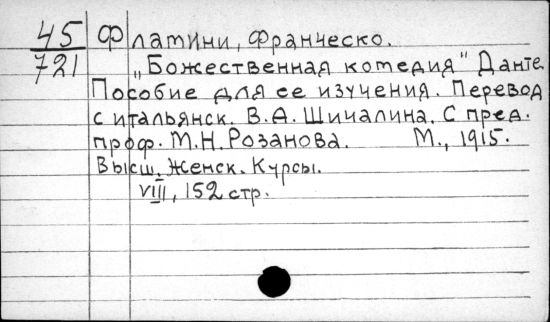 45
721
Флатини, Франческо.
„Божественная комедия" Данте.
Пособие для ее изучения. Перевод
с итальянск. В.А. Шичалина. С пред.
проф. М.Н. Розанова. М., 1915.
Высш. Женск. Курсы.
VIII, 152 стр.